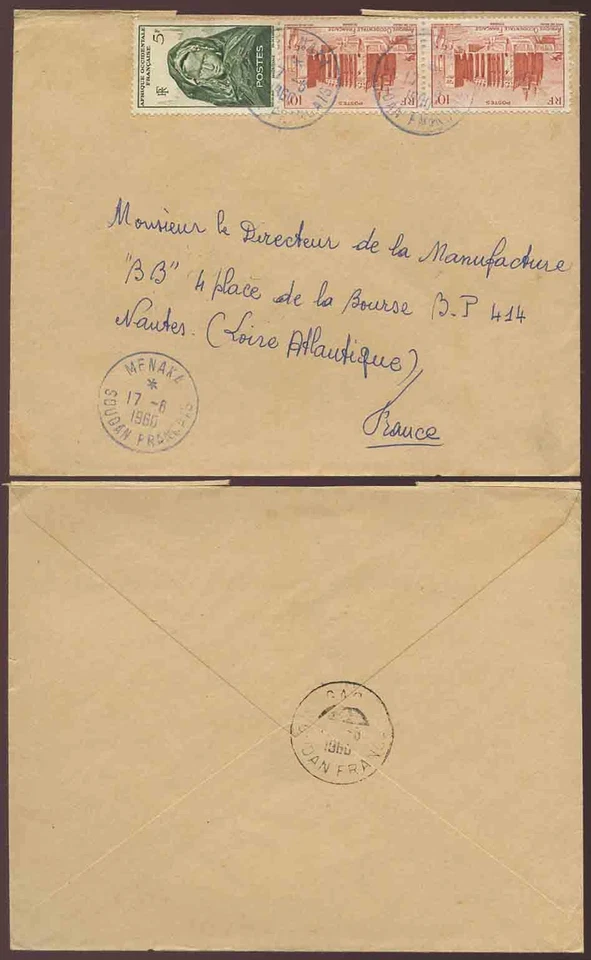 AFRIQUE OCCIDENTALE
FRANÇAISE
5F
RF
POSTES
AFRIQUE OCCIDENTALE FRANÇAISE
POSTES
10F
AFRIQUE OCCIDENTALE FRANÇAISE
RF
POSTES
10F
17
1960
SOUDAN FRANÇAIS
Monsieur le Directeur de la Manufacture
"BB" 4 place de la Bourse B.P 414
Nantes. (Loire Atlantique)
France
MENAKA
*
17 -6
1960
SOUDAN FRANÇAIS
GAO
-6
1960
SOUDAN FRANÇAIS